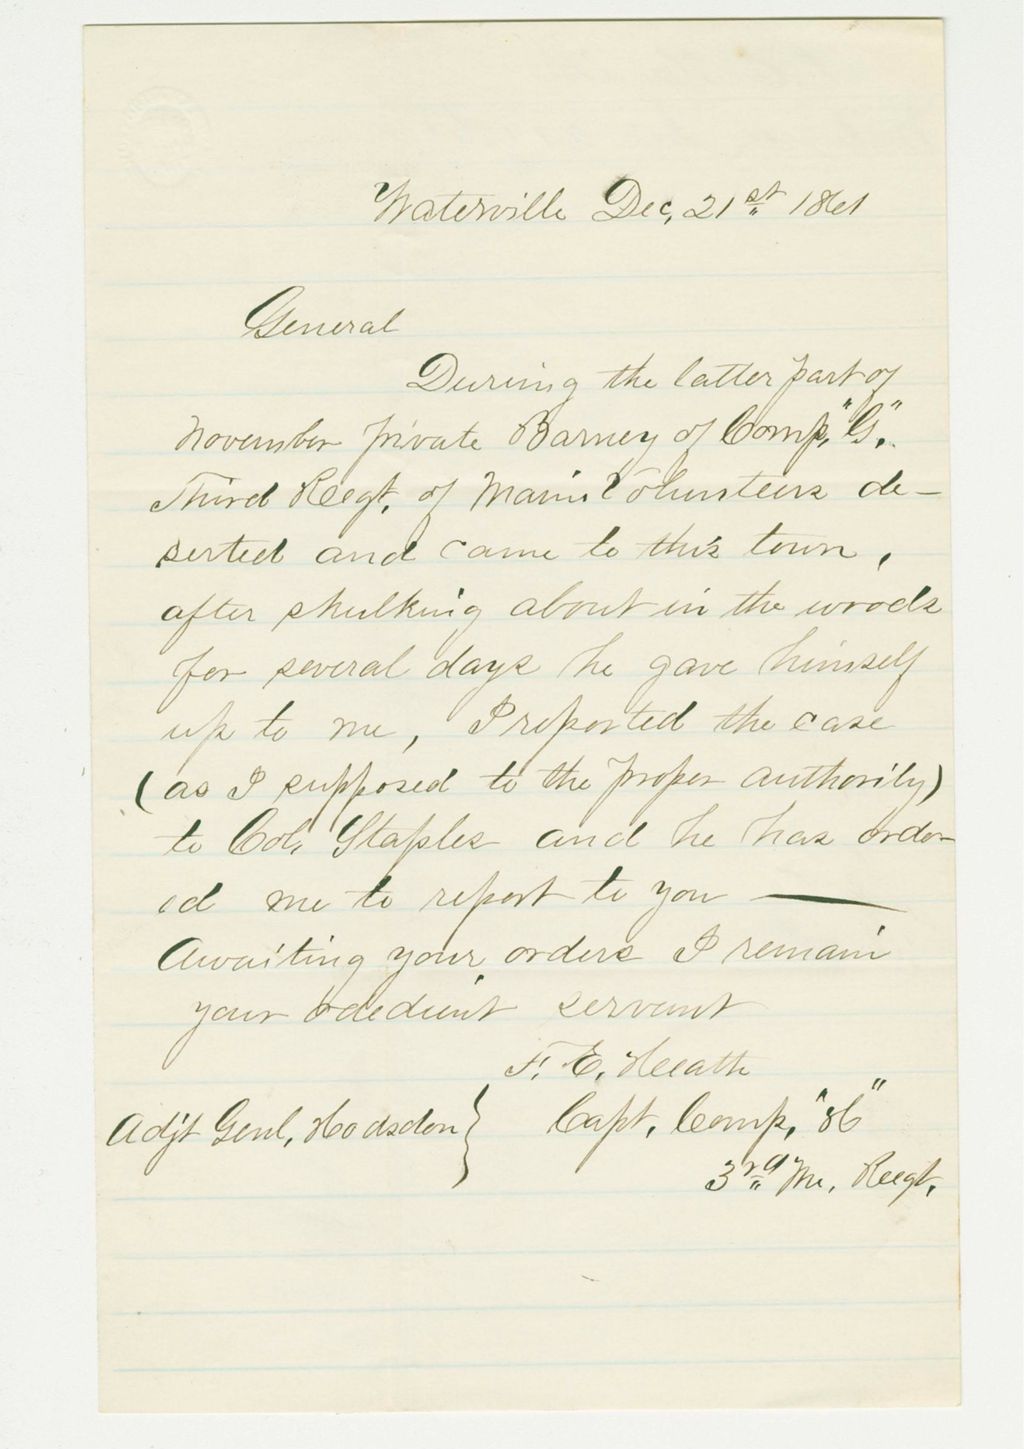 Waterville Dec, 21st 1861
General
During the latter part of
November private Barney of Comp, "G",
Third Regt, of Maine Volunteers de-
serted and came to this town,
after skulking about in the woods
for several days he gave himself
up to me, I reported the case
(as I supposed to the proper authority)
to Col, Staples and he has order
ed me to report to you —
Awaiting your orders I remain
your obedient servant
F. E. Heath
Adjt Genl, Hodsdon } Capt, Comp, "H"
3rd Me, Regt,